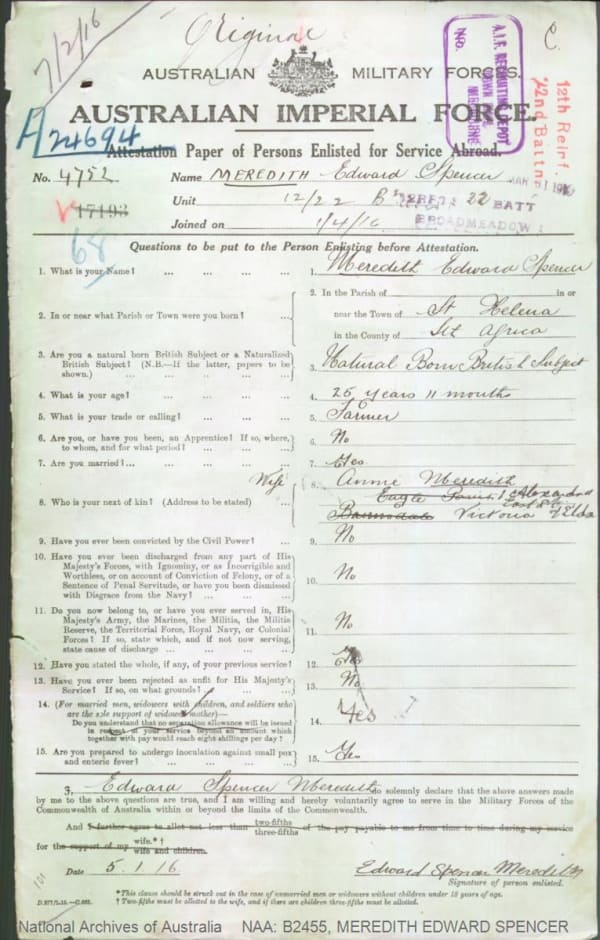 7/2/16
Original
C.
AUSTRALIAN MILITARY FORCES.
A.I.F. RECRUITING DEPOT
TOWN
MELBOURNE
No.
AUSTRALIAN IMPERIAL FORCE.
12th Reinf.
22nd Battn
A24694
Attestation Paper of Persons Enlisted for Service Abroad.
No. 4752 Name MEREDITH Edward Spencer
MAR 31 1916
Unit 12/22 Bn 22 BATT
17193
BROADMEADOW
Joined on 1/4/16
68
Questions to be put to the Person Enlisting before Attestation.
1. What is your Name? ... ... ... ... 1. Meredith Edward Spencer
2. In or near what Parish or Town were you born? ... 2. In the Parish of in or
near the Town of St Helena
in the County of Sth Africa
3. Are you a natural born British Subject or a Naturalized British Subject? (N.B.—If the latter, papers to be shown.) ... ... ... ... 3. Natural Born British Subject
4. What is your age? ... ... ... ... 4. 25 years 11 months
5. What is your trade or calling? ... ... ... 5. Farmer
6. Are you, or have you been, an Apprentice? If so, where, to whom, and for what period? ... ... ... 6. No
7. Are you married?... ... ... ... ... 7. Yes
Wife
8. Who is your next of kin? (Address to be stated) ... 8. Annie Meredith
Eagle 1 Alexandra
East St
Bairnsdale Victoria
9. Have you ever been convicted by the Civil Power? ... 9. No
10. Have you ever been discharged from any part of His Majesty's Forces, with Ignominy, or as Incorrigible and Worthless, or on account of Conviction of Felony, or of a Sentence of Penal Servitude, or have you been dismissed with Disgrace from the Navy? ... ... ... 10. No
11. Do you now belong to, or have you ever served in, His Majesty's Army, the Marines, the Militia, the Militia Reserve, the Territorial Force, Royal Navy, or Colonial Forces? If so, state which, and if not now serving, state cause of discharge ... ... ... ... 11. No
12. Have you stated the whole, if any, of your previous service? 12. Yes
13. Have you ever been rejected as unfit for His Majesty's Service? If so, on what grounds? ... ... ... 13. No
14. (For married men, widowers with children, and soldiers who are the sole support of widowed mother)—
Do you understand that no separation allowance will be issued in respect of your service beyond an amount which together with pay would reach eight shillings per day? 14. Yes
15. Are you prepared to undergo inoculation against small pox and enteric fever? ... ... ... ... 15. Yes
I, Edward Spencer Meredith do solemnly declare that the above answers made
by me to the above questions are true, and I am willing and hereby voluntarily agree to serve in the Military Forces of the
Commonwealth of Australia within or beyond the limits of the Commonwealth.
And I further agree to allot not less than two-fifths three-fifths of the pay payable to me from time to time during my service
for the support of my wife.*† wife and children.
Date 5.1.16. Edward Spencer Meredith
Signature of person enlisted.
*This clause should be struck out in the case of unmarried men or widowers without children under 18 years of age.
† Two-fifths must be allotted to the wife, and if there are children three-fifths must be allotted.
National Archives of Australia NAA: B2455, MEREDITH EDWARD SPENCER